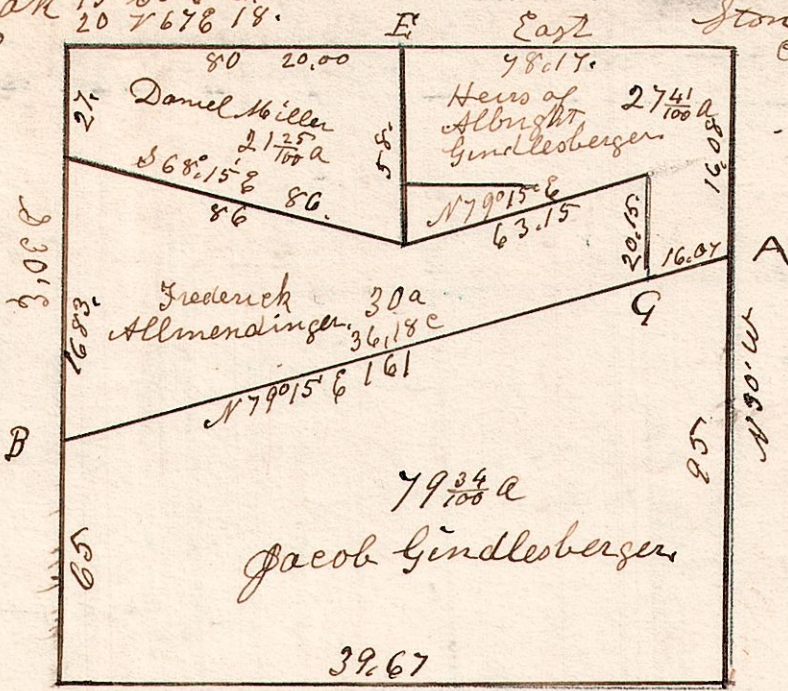 20 N 67 E 18.
E East Ston
80 20.00
78.17.
27.
Daniel Miller
21 25/100 a
58.
Heirs of
Albright
Gindlesberger
27 41/100 a
S 68°.15' E
86 86.
N 79°15' E
63.15
20.15.
16.07
A
G
Frederick
Allmendinger.
30a
36,18c
1683.
N 79°15' E 161
B
N 30' W
95
79 34/100 a
Jacob Gindlesberger.
65
39.67